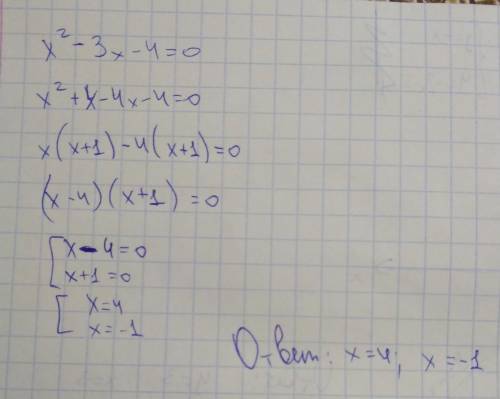 x² - 3x - 4 = 0
x² + x - 4x - 4 = 0
x(x+1) - 4(x+1) = 0
(x-4)(x+1) = 0
[ x - 4 = 0
x + 1 = 0
[ x = 4
x = -1
Ответ: x = 4; x = -1